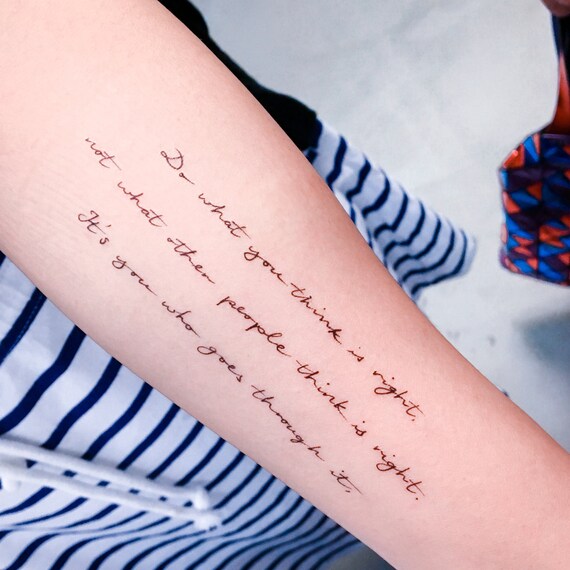 Do what you think is right.
not what other people think is right.
It's you who goes through it.